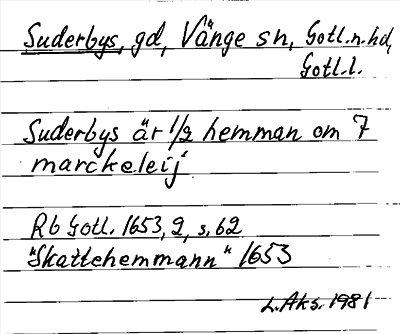 Suderbys, gd, Vänge sn, Gotl. n. hd,
Gotl. l.
Suderbys är 1/2 hemman om 7
marckeleij
Rb Gotl. 1653, 2, s. 62
"Skattehemmann" 1653
L. Aks. 1981